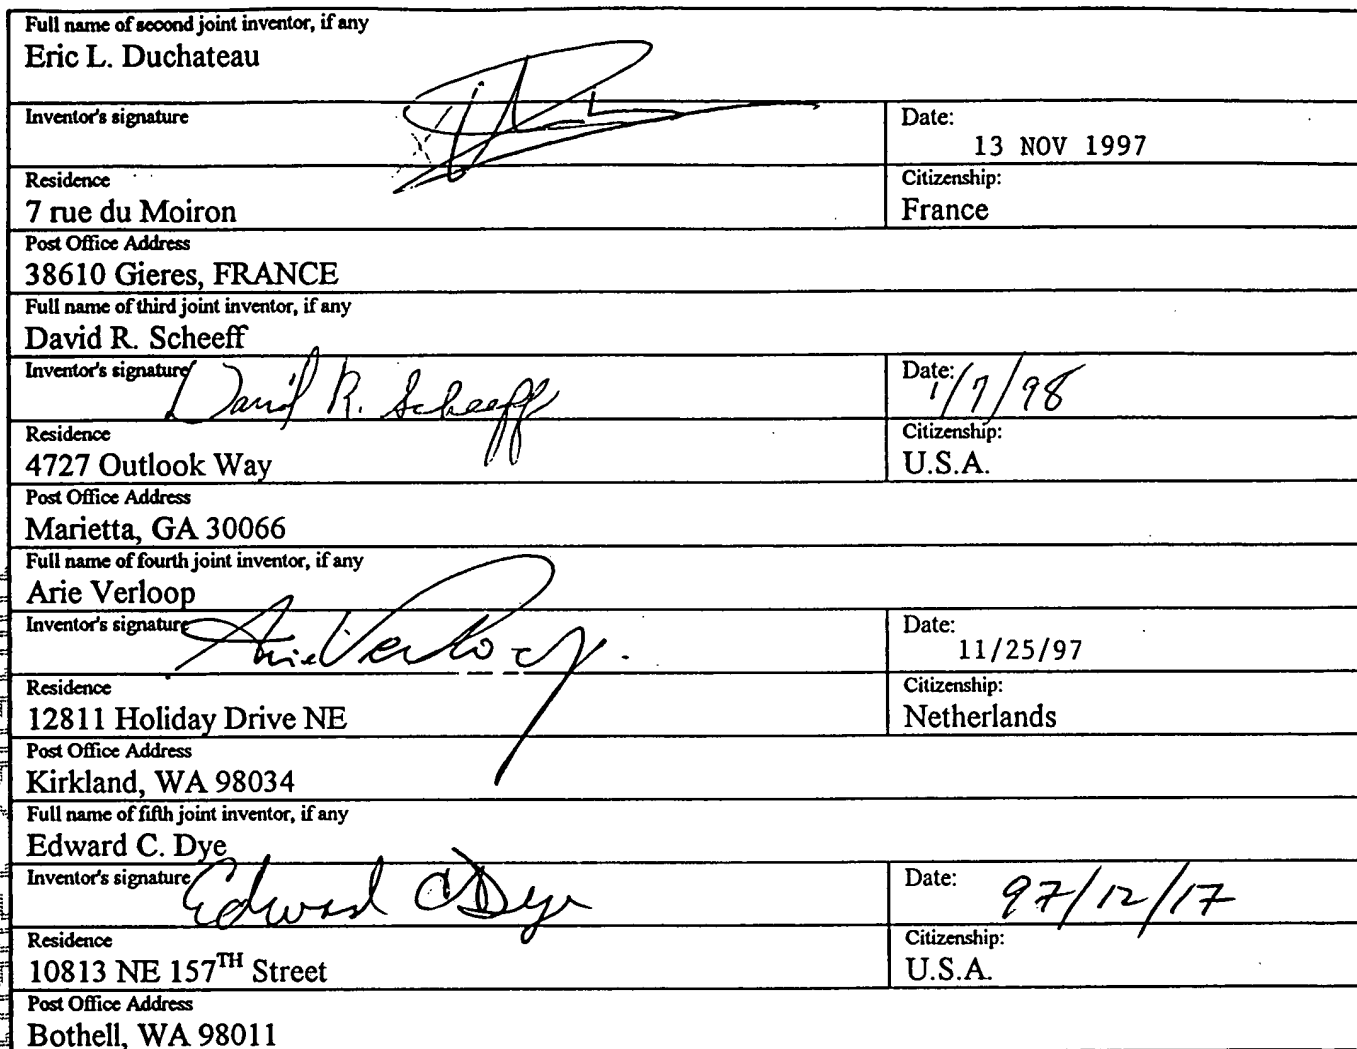 Full name of second joint inventor, if any
Eric L. Duchateau
Inventor's signature
Date:
13 NOV 1997
Residence
7 rue du Moiron
Citizenship:
France
Post Office Address
38610 Gieres, FRANCE
Full name of third joint inventor, if any
David R. Scheeff
Inventor's signature David R. Scheeff
Date: 1/7/98
Residence
4727 Outlook Way
Citizenship:
U.S.A.
Post Office Address
Marietta, GA 30066
Full name of fourth joint inventor, if any
Arie Verloop
Inventor's signature Arie Verloop
Date:
11/25/97
Residence
12811 Holiday Drive NE
Citizenship:
Netherlands
Post Office Address
Kirkland, WA 98034
Full name of fifth joint inventor, if any
Edward C. Dye
Inventor's signature Edward C Dye
Date: 97/12/17
Residence
10813 NE 157TH Street
Citizenship:
U.S.A.
Post Office Address
Bothell, WA 98011